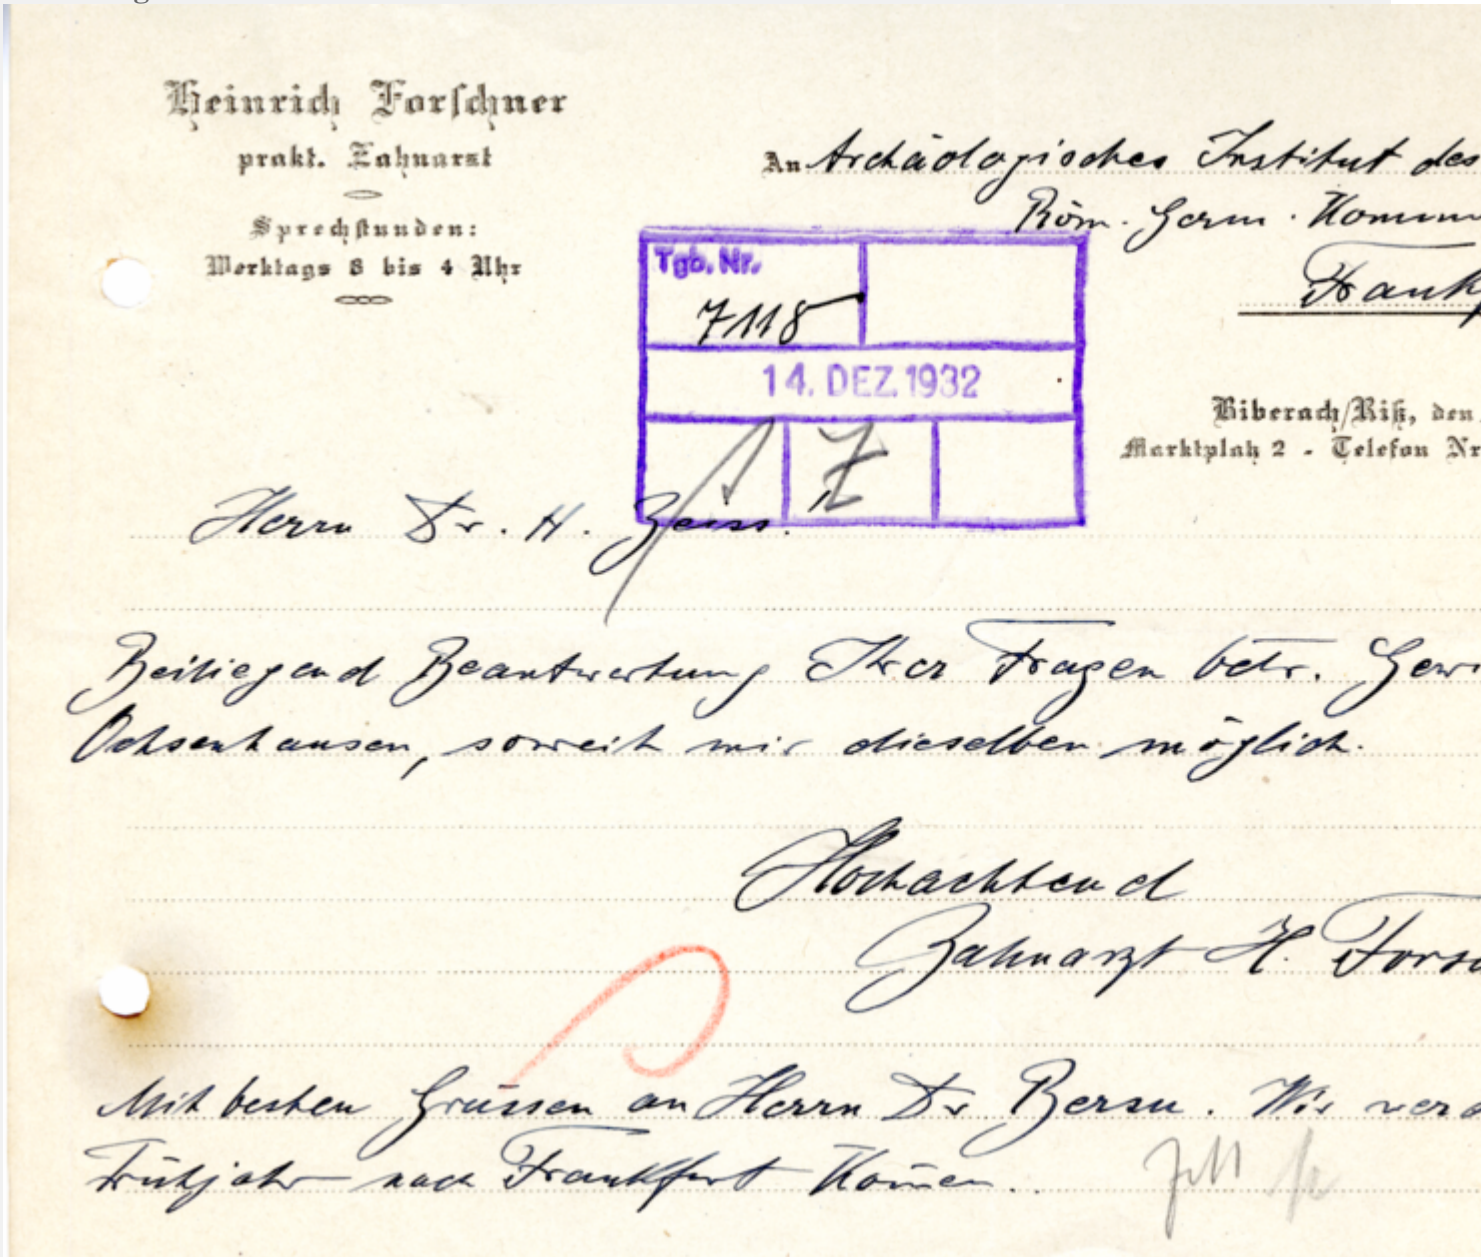 Heinrich Forschner
prakt. Zahnarzt
Sprechstunden:
Werktags 8 bis 4 Uhr
An Archäologisches Institut des
Röm. Germ. Komm
Frankf
Tgb. Nr.
7118
14. DEZ. 1932
Z
Biberach/Riß, den
Marktplatz 2 - Telefon Nr
Herrn Dr. H. Zeiss.
Beiliegend Beantwortung Ihrer Fragen betr. Gewi
Ochsenhausen, soweit mir dieselben möglich.
Hochachtend
Zahnarzt H. Forsc
Mit besten Grüssen an Herrn Dr Bersu. Wir werd
Frühjahr nach Frankfurt kom̄en.